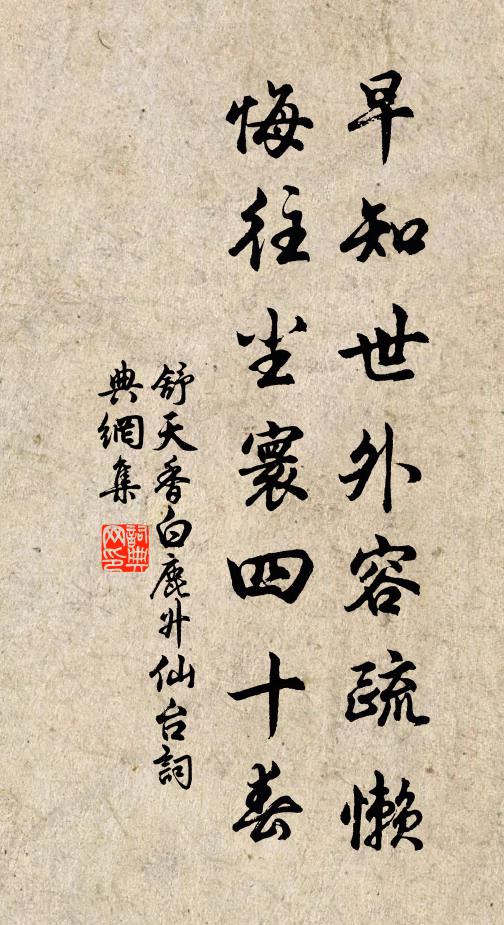 早知世外容疏懒
悔往尘寰四十春
舒天香白鹿升仙台詞
典網集
詞典
网印